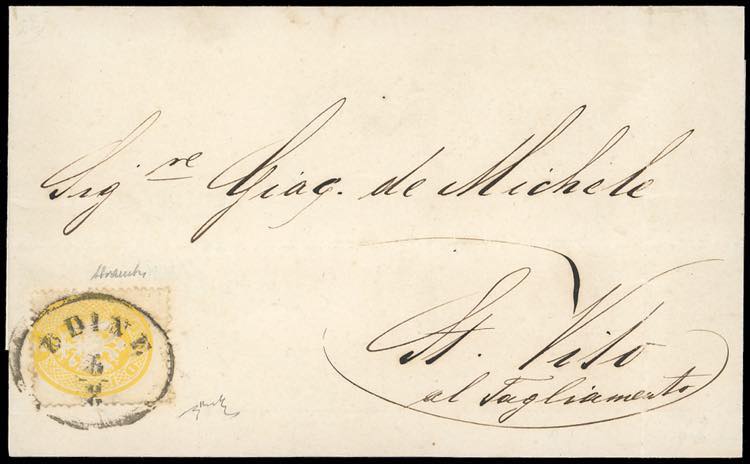 Sig.re Giac. de Michele
St. Vito
al Tagliamento
UDINE